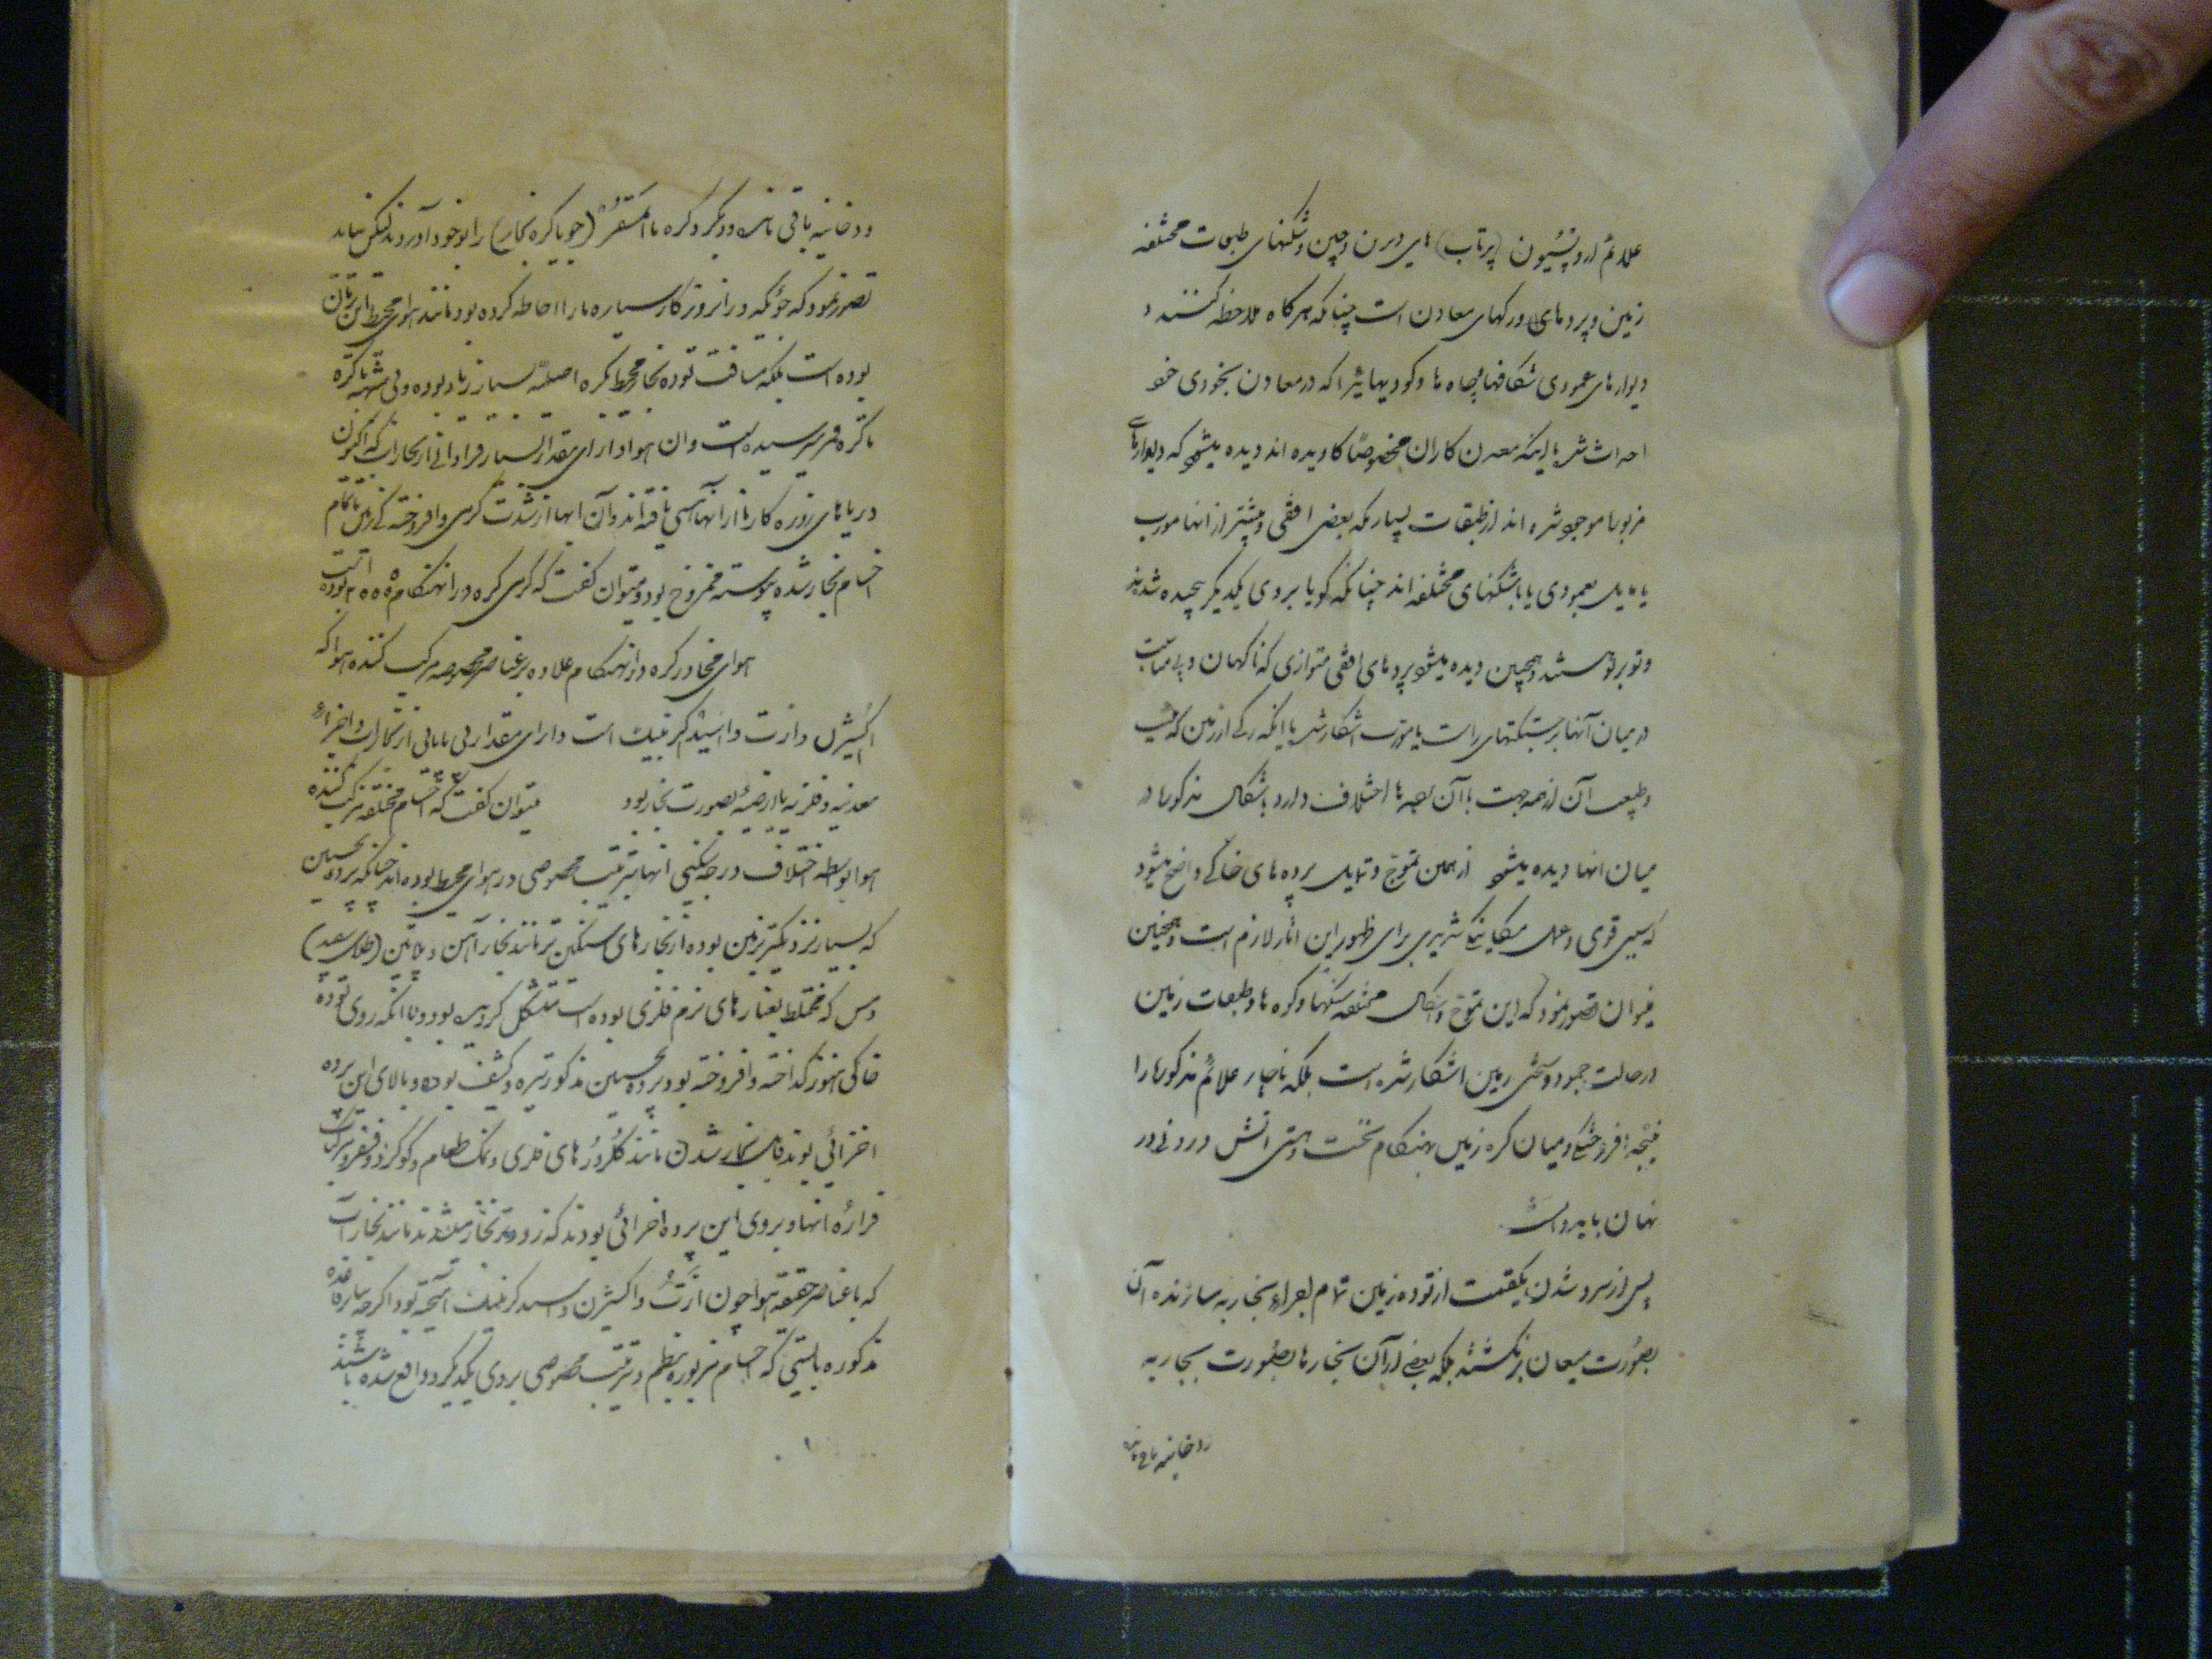 علائم اروپسیون (پرتاب) های درن و چین و شکنهای طبقات مختلفه
زمین و پردهای و رکهای معادن است چنانکه هرکاه ملاحظه کنند
دیوارهای عمودی شکافها و چاه ها و کودیها را که در معادن بخودی خود
احداث شده یا اینکه معدن کاران مخصوصاً کاویده اند دیده میشود که دیوارهای
مزبور موجود شده اند از طبقات بسیار که بعضی افقی و بیشتر از انها مورب
یا مایل بعمودی یا باشکنهای مختلفه اند چنانکه کویا بروی یکدیکر پیچیده شده اند
و تو بر تو هستند و همچنین دیده میشود پردهای افقی متوازی که ناکهان و بی مناسبت
در میان آنها برجستکیهای راست یا مورب اشکار شده یا اینکه رکی از زمین که
و طبیعت آن از همه جهت با آن پرده ها اختلاف دارد باشکال مذکوره در
میان انها دیده میشود از همین تموج و تمایل پرده های خاکی واضح میشود
که سببی قوی و عمل میکانیکی شدیدی برای ظهور این اثار لازم است و همچنین
نمیتوان تصور نمود که این تموج و اشکال مختلفه سنکها و کره ها و طبقات زمین
در حالت جمود و سختی زمین اشکار شده است بلکه ناچار علائم مذکوره را
نتیجه افروختکی و میعان کره زمین بهنکام نخست و هستی اتش درونی در
نهان باید دانست
پس از سرد شدن یکقسمت از توده زمین تمام اجزاء بخاریه سازنده آن
بصورت میعان برنکشته بلکه بعضی از آن بخارها بصورت بخاریه
و دخانیه باقی مانده
و دخانیه باقی مانده و بکرد کره ما اتمسفر (جو یا کره بخار) را بوجود آوردند لیکن نباید
تصور نمود که جوّیکه در انروزکار سیاره ما را احاطه کرده بود مانند هوای محیط این زمان
بوده است بلکه مسافت توده بخار محیط بکره اصلیّه بسیار زیاد بوده و بی شبهه تا کره
ماه میرسیده است و ان هوا دارای مقدار بسیار فراوانی از بخارات که اکنون
دریاهای روزکار ما از انها هستی یافته اند و آن ابها از شدت کرمی و افروختکی زمین تمام
اجسام بخار شده پیوسته ممزوج بود و میتوان کفت که کرمی کره در انهنکام ۲۰۰۰ بوده است
هوای مجاور کره در انهنکام علاوه بر عناصر مخصوصه مرکب کننده هوا که
اکسیژن و ازت و اسید کربنیک است دارای مقدار بی پایانی از بخارات و اجزاء
معدنیه و فلزیه یا ارضیّه بصورت بخار بود میتوان کفت که اجسام مختلفه مرکب کننده
هوا بواسطه اختلاف درجه سنکینی انها بترتیب مخصوصی در هوای محیط بوده اند چنانکه پرده نخستین
که بسیار نزدیکتر بزمین بوده از بخارهای سنکین تر مانند بخار آهن و پلاتین (طلای سفید)
و مس که مختلط بغبارهای نرم فلزی بوده است متشکل کردیده بود و با آنکه روی توده
خاکی هنوز کداخته و افروخته بود پرده نخستین مذکور تیره و کثیف بوده و بالای این پرده
اجزائی بودند قابل بخار شدن مانند کلرورهای فلزی و نمک طعام و کوکرد و فسفر و مرکبات
فراره انها و بروی این پرده اجزائی بودند که زودتر بخار میشدند مانند بخار آب
که با عناصر حقیقیه هوا چون ازت و اکسیژن و اسید کربنیک آمیخته بود اکرچه بنا بقاعده
مذکوره بایستی که اجسام مزبوره بنظم و ترتیب مخصوصی بروی یکدیکر واقع شده باشند